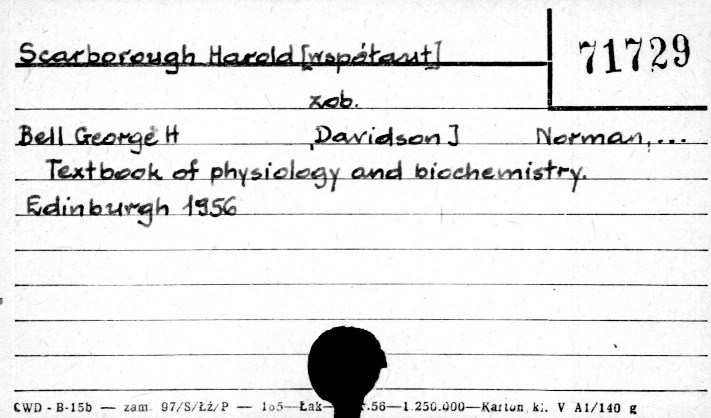 Scarborough Harold [współaut]
71729
zob.
Bell George H , Davidson J Norman, ...
Textbook of physiology and biochemistry.
Edinburgh 1956
CWD - B-15b — zam. 97/S/Łź/P — 165—Łak— .56—1.250.000—Karton kl. V A1/140 g